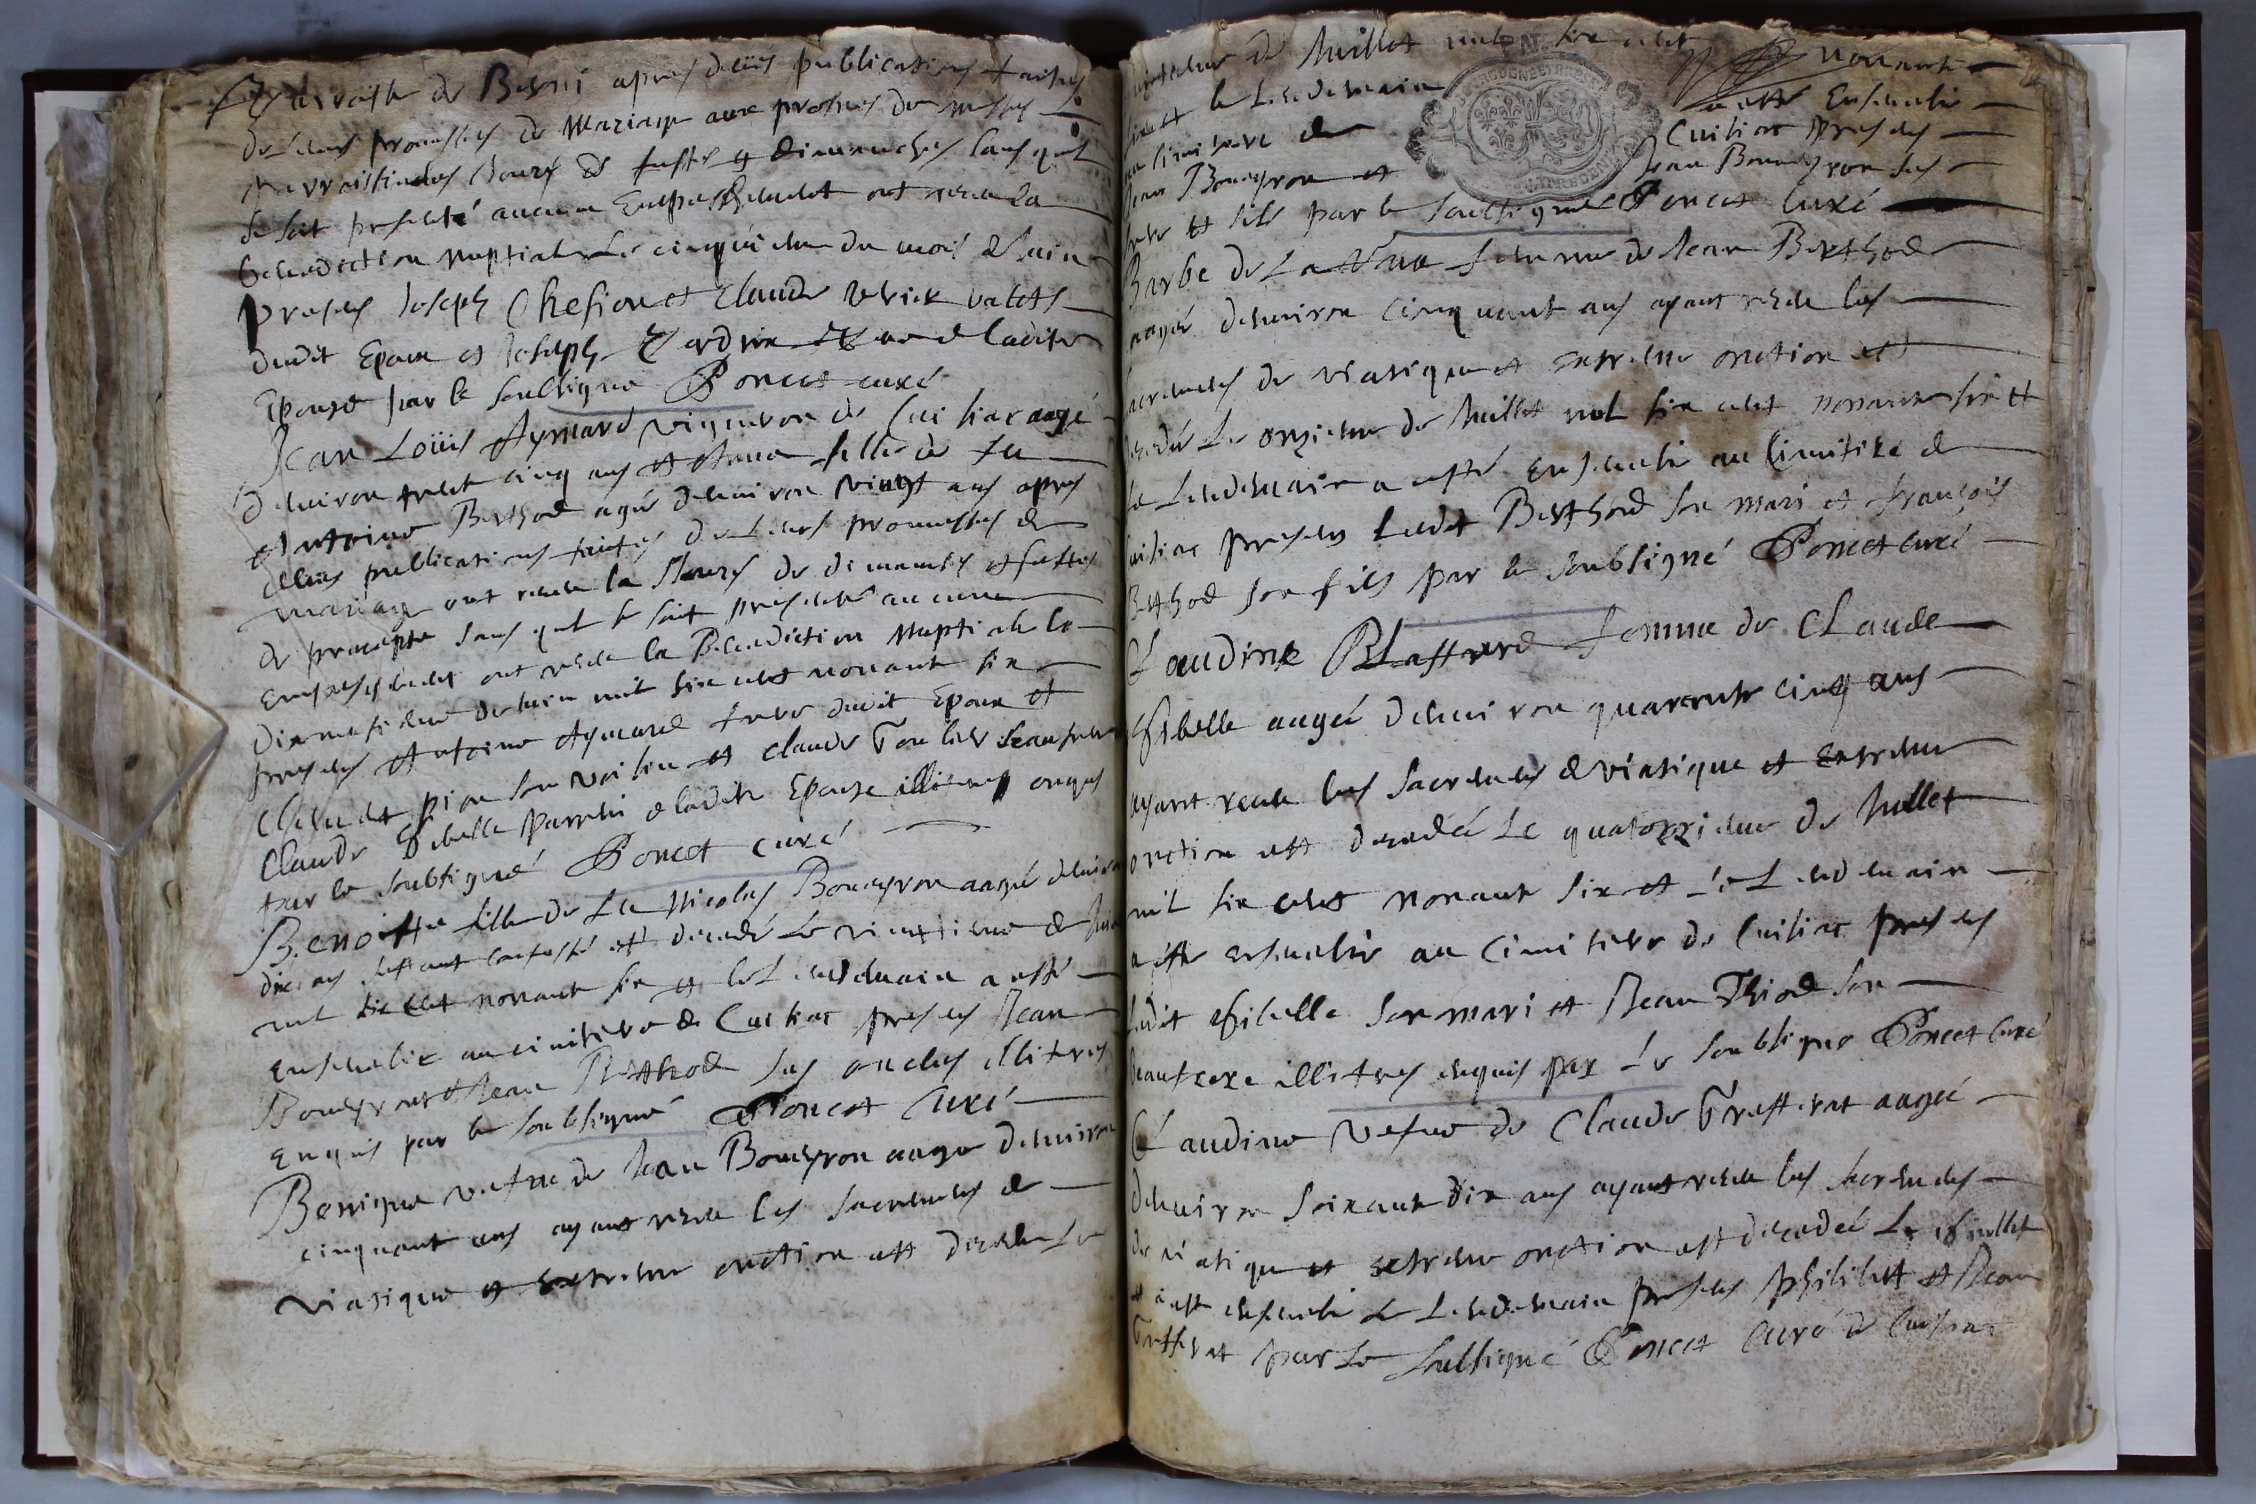 de Besni apres deus publications faites
de leurs promesses de Mariage aux prosnes des messes
Parroissiales jours de festes et dimenches sans quil
se soit presenté aucun Empeschement ont receu la
benediction Nuptiale Le cinquieme du mois de Juin
Presens Joseph Chesion et Claude valets
dudit Epoux et Joseph de ladite
Epouse par le soubsigné Poncet curé
Jean Loüis Aymard vigneron de Cuiliac aagé
denviron trente cinq ans et Anna fille de feu
Antoine Berthod agée denviron vingt ans apres
deus publications faites de Leurs promesses de
mariage ont receu la jours de dimanches et festes
de precepte sans quil se soit presenté aucune
empeschement ont receu la Benediction Nuptiale le
Dixneufieme de Juin mil six cens nonante six
presens Antoine Aymard frere dudit Epoux et
Clement pion son voisin et Claude Goulier beaufrere
Claude Sibelle parrein de ladite Epouse illitere enquis
par le soubsigné Poncet curé
Benoitte fille de feu Nicolas Bouveyron aagée denviron
dix ans sestant confessé est decedé Le vingtieme de Juin
mil six cent nonante six et le Lendemain a esté
Enseuelie au cimitiere de Cuiliac presens Jean
Bouveyron et Jean Berthod ses oncles illiteres
Enquis par le soubsigné Poncet Curé
Benigne vefue de Jean Bouveyron aagée denviron
cinquant ans ayant receu les sacremens de
viatique et extreme onction est decedée Le
de Juillet mil six cent nonante
six et le Lendemain a esté Enseuelie
au cimitiere de Cuiliac Presens
Jean Bouveyron et Jean Bouveyron ses
frere et fils par le soubsigné Poncet Curé
Barbe de La femme de Jean Berthod
aagée denviron Cinquant ans ayant receu les
sacremens de viatique et extreme onction est
decedée Le onzieme de Juillet mil six cent nonante six et
le Lendemain a esté Enseuelie au Cimitiere de
Cuiliac presens Ledit Berthod son mari et françois
Berthod son fils par le soubsigné Poncet Curé
Claudine Blaffard femme de Claude
Sibelle aagée denviron quarante cinq ans
ayant receu les sacremens de viatique et Extreme
onction est decedée Le quatorzieme de Juillet
mil six cens nonante six et Le Lendemain
a esté enseuelie au Cimitiere de Cuiliac presens
Ledit Sibelle son mari et Jean Thiod son
beaufrere illiteres enquis par Le soubsigné Poncet Curé
Claudine vefue de Claude Greffet aagée
denviron soixante dix ans ayant receu les sacremens
de viatique et extreme onction est decedée Le 18 juillet
et a esté enseuelie Le Lendemain presens Philibert et Jean
par Le soubsigné Poncet Curé de Cuiliac